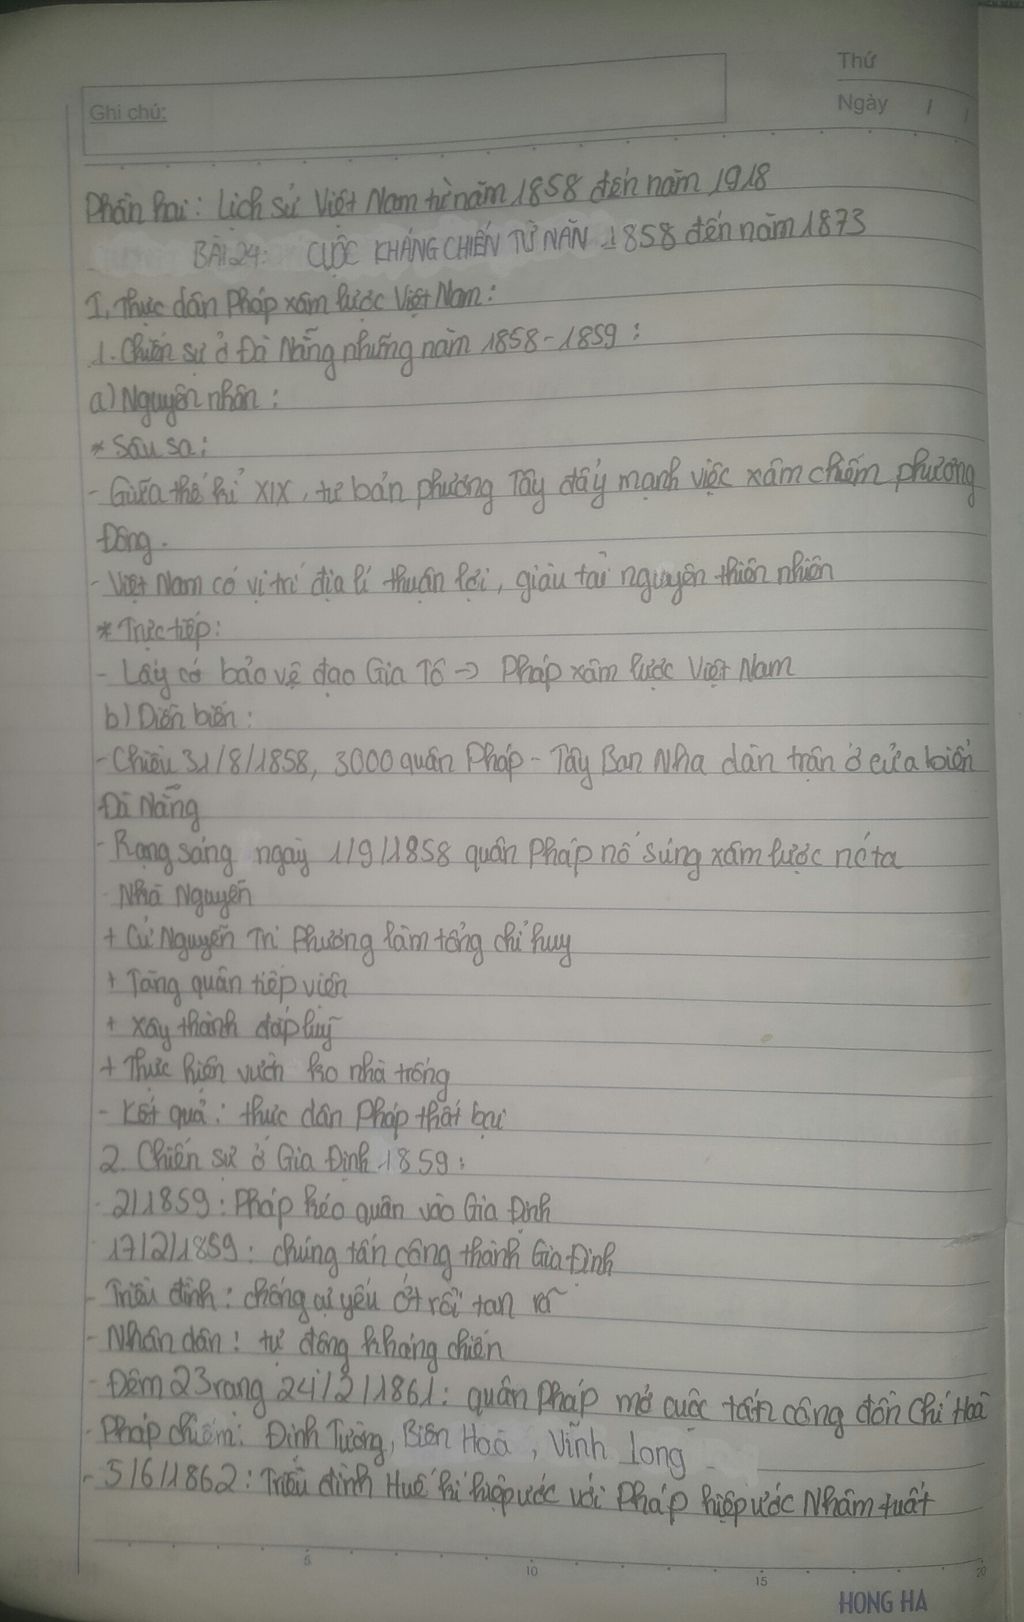 Thứ
Ghi chú:
Ngày / /
Phần hai: Lịch sử Việt Nam từ năm 1858 đến năm 1918
BÀI 24: CUỘC KHÁNG CHIẾN TỪ NĂN 1858 đến năm 1873
I, Thực dân Pháp xâm lược Việt Nam:
1. Chiến sự ở Đà Nẵng những năm 1858-1859:
a) Nguyên nhân:
* Sâu sa:
- Giữa thế kỉ XIX, tư bản phương Tây đẩy mạnh việc xâm chiếm phương
Đông.
- Việt Nam có vị trí địa lí thuận lợi, giàu tài nguyên thiên nhiên
* Trực tiếp:
- Lấy cớ bảo vệ đạo Gia Tô => Pháp xâm lược Việt Nam
b) Diễn biến:
- Chiều 31/8/1858, 3000 quân Pháp - Tây Ban Nha dàn trận ở cửa biển
Đà Nẵng
- Rạng sáng ngày 1/9/1858 quân Pháp nổ súng xâm lược nc ta
- Nhà Nguyễn
+ Cử Nguyễn Tri Phương làm tổng chỉ huy
+ Tăng quân tiếp viện
+ Xây thành đắp luỹ
+ Thực hiện vườn ko nhà trống
- Kết quả: thực dân Pháp thất bại
2. Chiến sự ở Gia Định 1859:
- 2/1859: Pháp kéo quân vào Gia Định
17/2/1859: chúng tấn công thành Gia Định
- Triều đình: chống cự yếu ớt rồi tan rã
- Nhân dân: tự động kháng chiến
- Đêm 23 rạng 24/2/1861: quân Pháp mở cuộc tấn công đồn Chí Hoà
- Pháp chiếm: Định Tường, Biên Hoà, Vĩnh Long
- 5/6/1862: Triều đình Huế kí hiệp ước với Pháp hiệp ước Nhâm tuất
5
10
15
20
HONG HA